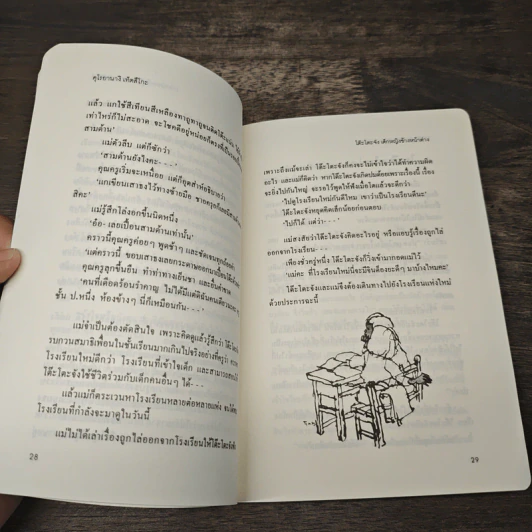 คุโรยานางิ เท็ตสึโกะ
แล้ว แกใช้สีเทียนสีเหลืองทาถูทาถูจนติดโต๊ะแน่น
เท่าไหร่ก็ไม่สะอาด จะโชคดีอยู่หน่อยก็ตรงที่เปื้อน
สามด้าน'
แม่ตัวลีบ แต่ก็ชักว่า
'สามด้านยังไงคะ- - -'
คุณครูเริ่มจะเหนื่อย แต่ก็อุตส่าห์อธิบายว่า
'แกเขียนเสาธงไว้ทางซ้ายมือ ชายครุย
สิคะ'
แม่รู้สึกโล่งอกขึ้นนิดหนึ่ง
'อ้อ- เลยเปื้อนสามด้านเท่านั้น'
คราวนี้คุณครูค่อยๆ พูดช้าๆ และชัดเจนทุก
'แต่คราวนี้ ขอบเสาธงเลยกระดาษออกมาเปื้อนโต๊ะ
คุณครูลุกขึ้นยืน ทำท่าทางเย็นชา และยื่นคำขาด
'คนที่เดือดร้อนรำคาญ ไม่ได้มีแต่ดิฉันคนเดียว
ชั้น ป.หนึ่ง ห้องข้างๆ นี่ก็เหมือนกัน- - -'
แม่จำเป็นต้องตัดสินใจ เพราะคิดดูแล้วรู้สึกว่า
รบกวนสมาธิเพื่อนในชั้นเรียนมากเกินไปจริงอย่างที่ครูว่า
โรงเรียนใหม่ดีกว่า โรงเรียนที่เข้าใจเด็ก และสามารถสอนให้
โต๊ะโตะจังใช้ชีวิตร่วมกับเด็กคนอื่นๆ ได้- - -
แล้วแม่ก็ตระเวนหาโรงเรียนหลายต่อหลายแห่ง จนได้พบ
โรงเรียนที่กำลังจะมาดูในวันนี้
แม่ไม่ได้เล่าเรื่องถูกไล่ออกจากโรงเรียนให้โต๊ะโตะจังฟัง
28
โต๊ะโตะจัง เด็กหญิงข้างหน้าต่าง
เพราะถึงแม้จะเล่า โต๊ะโตะจังก็คงจะไม่เข้าใจว่าได้ทำความผิด
อะไร และแม่ก็คิดว่า หากโต๊ะโตะจังเกิดปมด้อยเพราะเรื่องนี้ เรื่อง
จะยิ่งไปกันใหญ่ จะรอไว้พูดให้ฟังเมื่อโตแล้วจะดีกว่า
'ไปดูโรงเรียนใหม่กันดีไหม เขาว่าเป็นโรงเรียนดีนะ'
โต๊ะโตะจังหยุดคิดเล็กน้อยก่อนตอบ
'ไปก็ได้ แต่ว่า- - -'
แม่สงสัยว่าโต๊ะโตะจังคิดอะไรอยู่ หรือแอบรู้เรื่องถูกไล่
ออกจากโรงเรียน- - -
เพียงชั่วครู่หนึ่ง โต๊ะโตะจังก็วิ่งเข้ามากอดแม่ไว้
'แม่คะ ที่โรงเรียนใหม่นี่จะมีจินดองยะดีๆ มาบ้างไหมคะ'
โต๊ะโตะจังและแม่จึงต้องเดินทางไปยังโรงเรียนแห่งใหม่
ด้วยประการฉะนี้
29